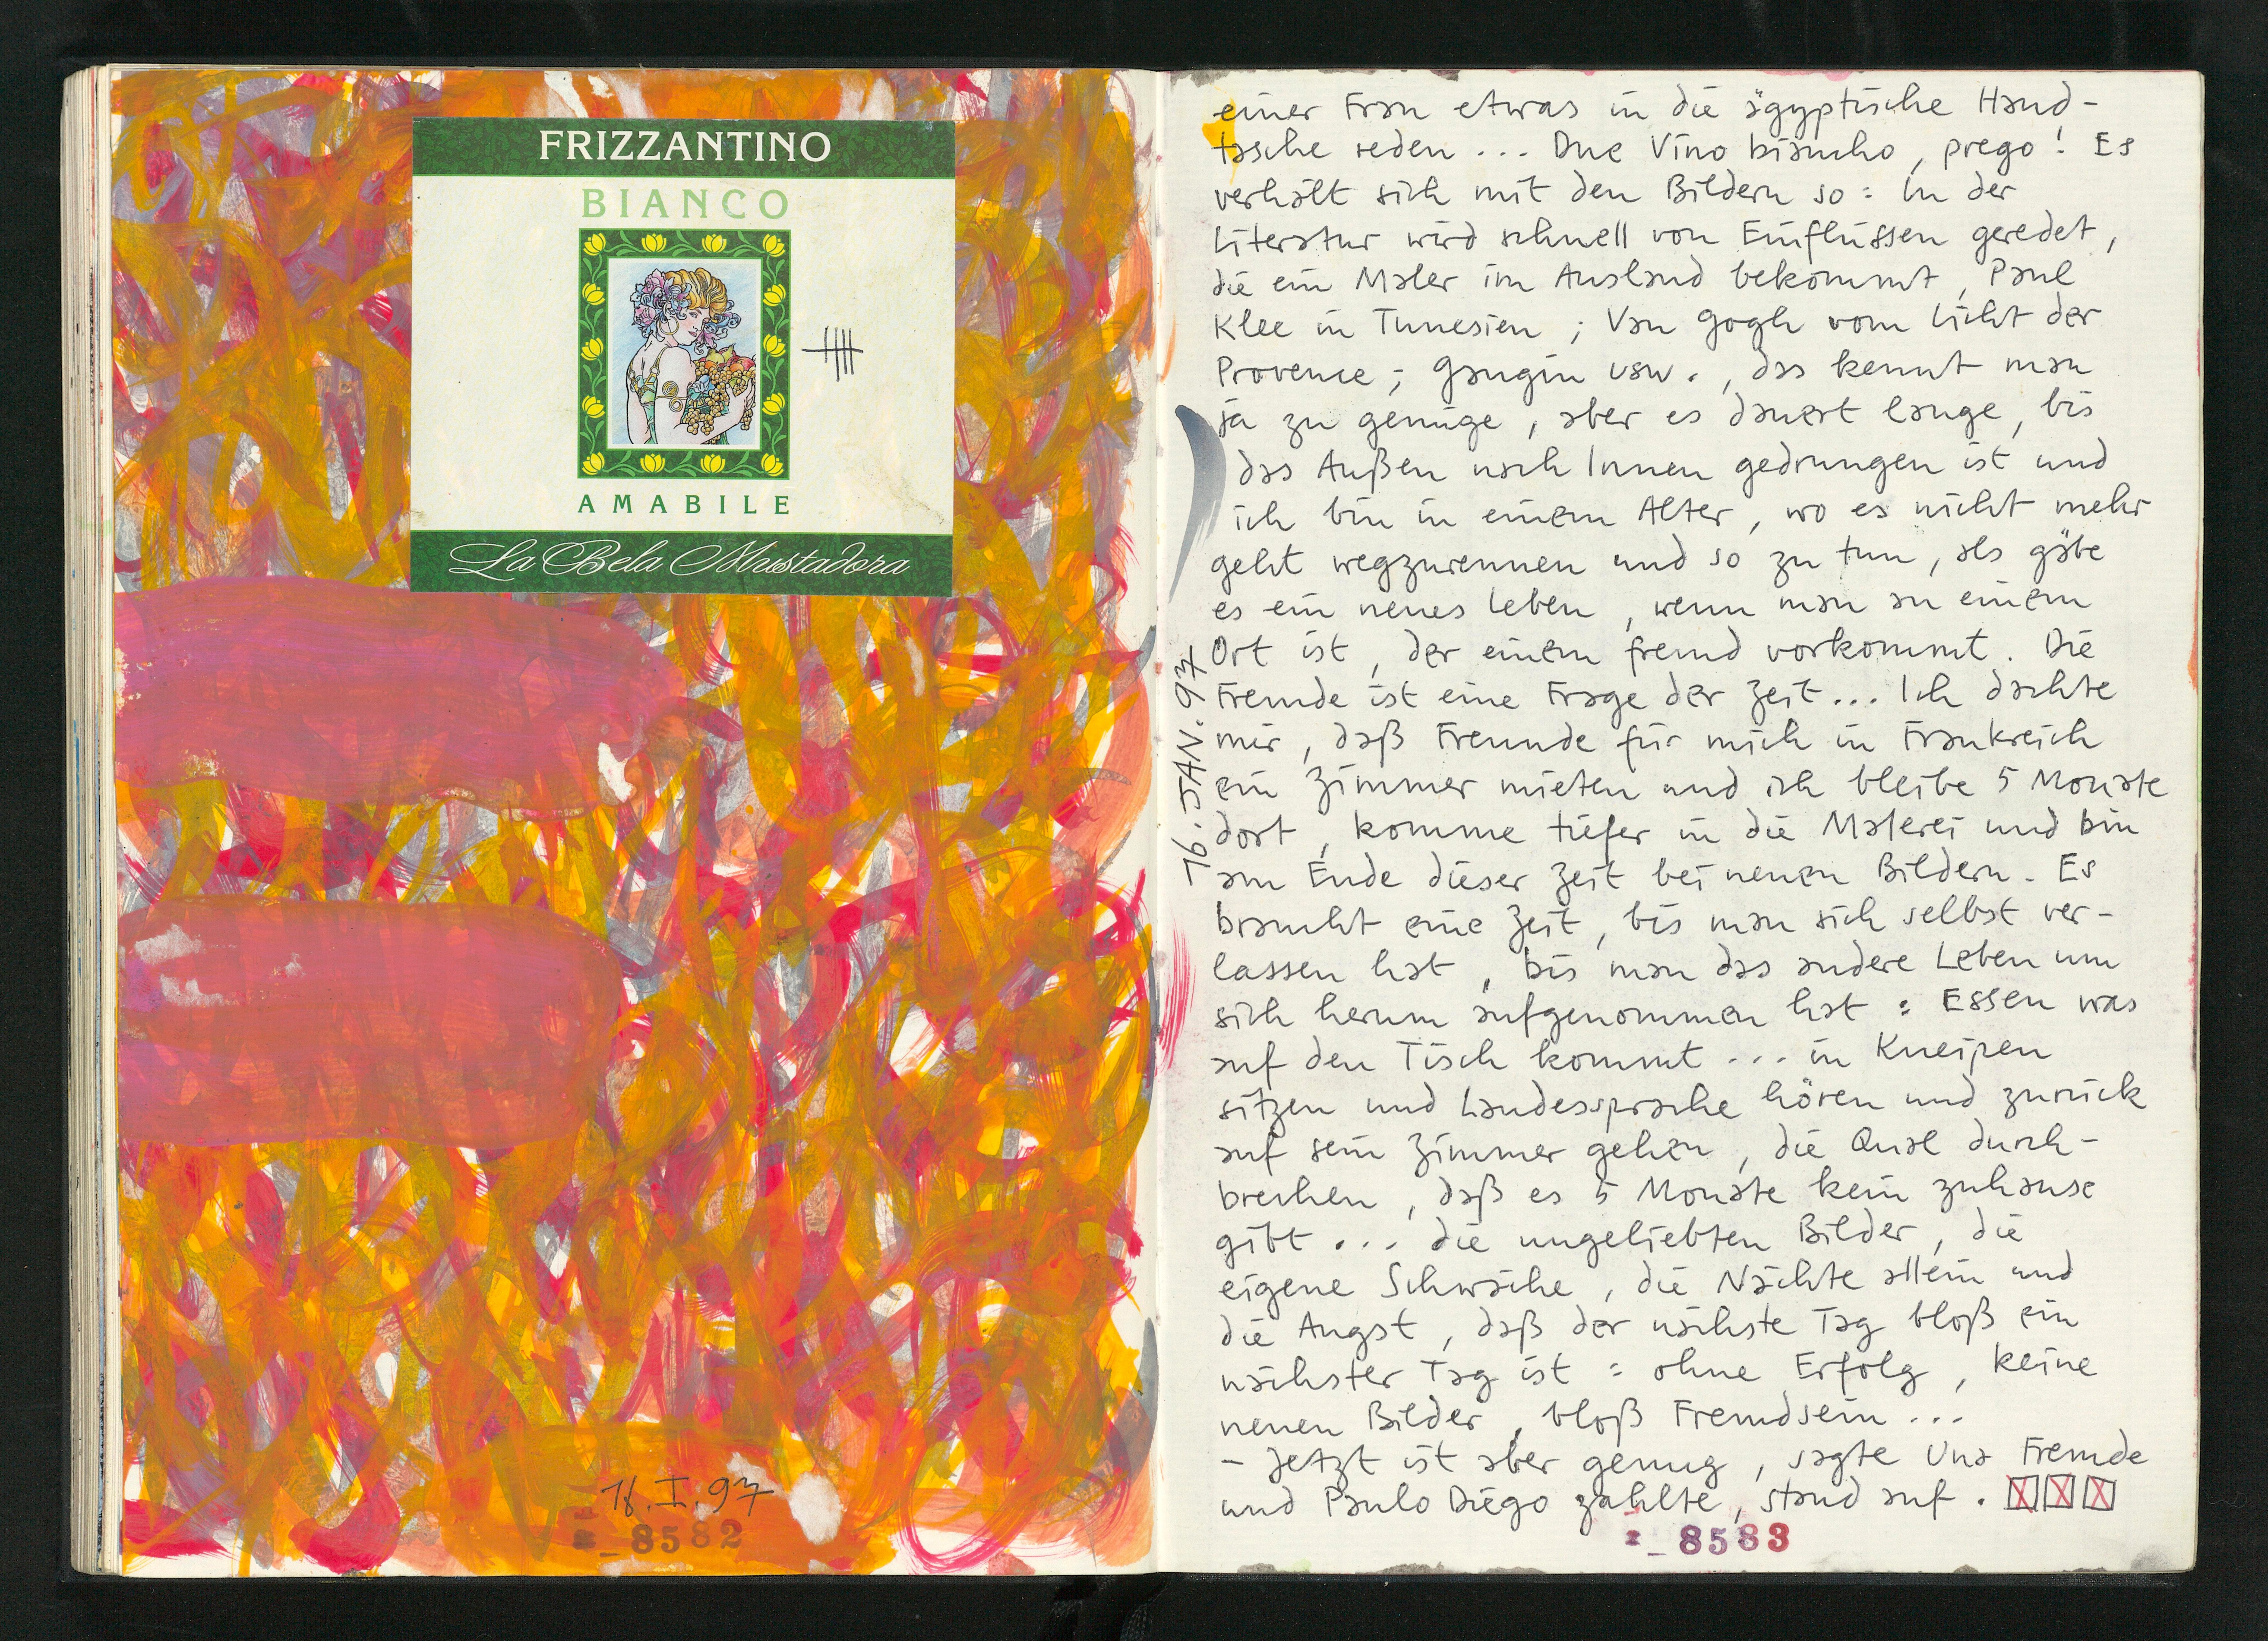 FRIZZANTINO
BIANCO
AMABILE
La Bela Mustadora
16.I.97
8582
einer Frau etwas in die ägyptische Hand-
tasche reden ... Due Vino biancho, prego! Es
verhält sich mit den Bildern so: In der
Literatur wird schnell von Einflüssen geredet,
die ein Maler im Ausland bekommt, Paul
Klee in Tunesien; Van Gogh vom Licht der
Provence; Gaugin usw., das kennt man
ja zu genüge, aber es dauert lange, bis
das Außen nach Innen gedrungen ist und
ich bin in einem Alter, wo es nicht mehr
geht wegzurennen und so zu tun, als gäbe
es ein neues Leben, wenn man an einem
Ort ist, der einem fremd vorkommt. Die
Fremde ist eine Frage der Zeit... Ich dachte
mir, daß Freunde für mich in Frankreich
ein Zimmer mieten und ich bleibe 5 Monate
dort, komme tiefer in die Malerei und bin
am Ende dieser Zeit bei neuen Bildern. Es
braucht eine Zeit, bis man sich selbst ver-
lassen hat, bis man das andere Leben um
sich herum aufgenommen hat: Essen was
auf den Tisch kommt ... in Kneipen
sitzen und Landessprache hören und zurück
auf sein Zimmer gehen, die Qual durch-
brechen, daß es 5 Monate kein zuhause
gibt ... die ungeliebten Bilder, die
eigene Schwäche, die Nächte allein und
die Angst, daß der nächste Tag bloß ein
nächster Tag ist: ohne Erfolg, keine
neuen Bilder, bloß Fremdsein ...
- Jetzt ist aber genug, sagte Una Fremde
und Paulo Diego zahlte, stand auf.
16. JAN. 97
8583